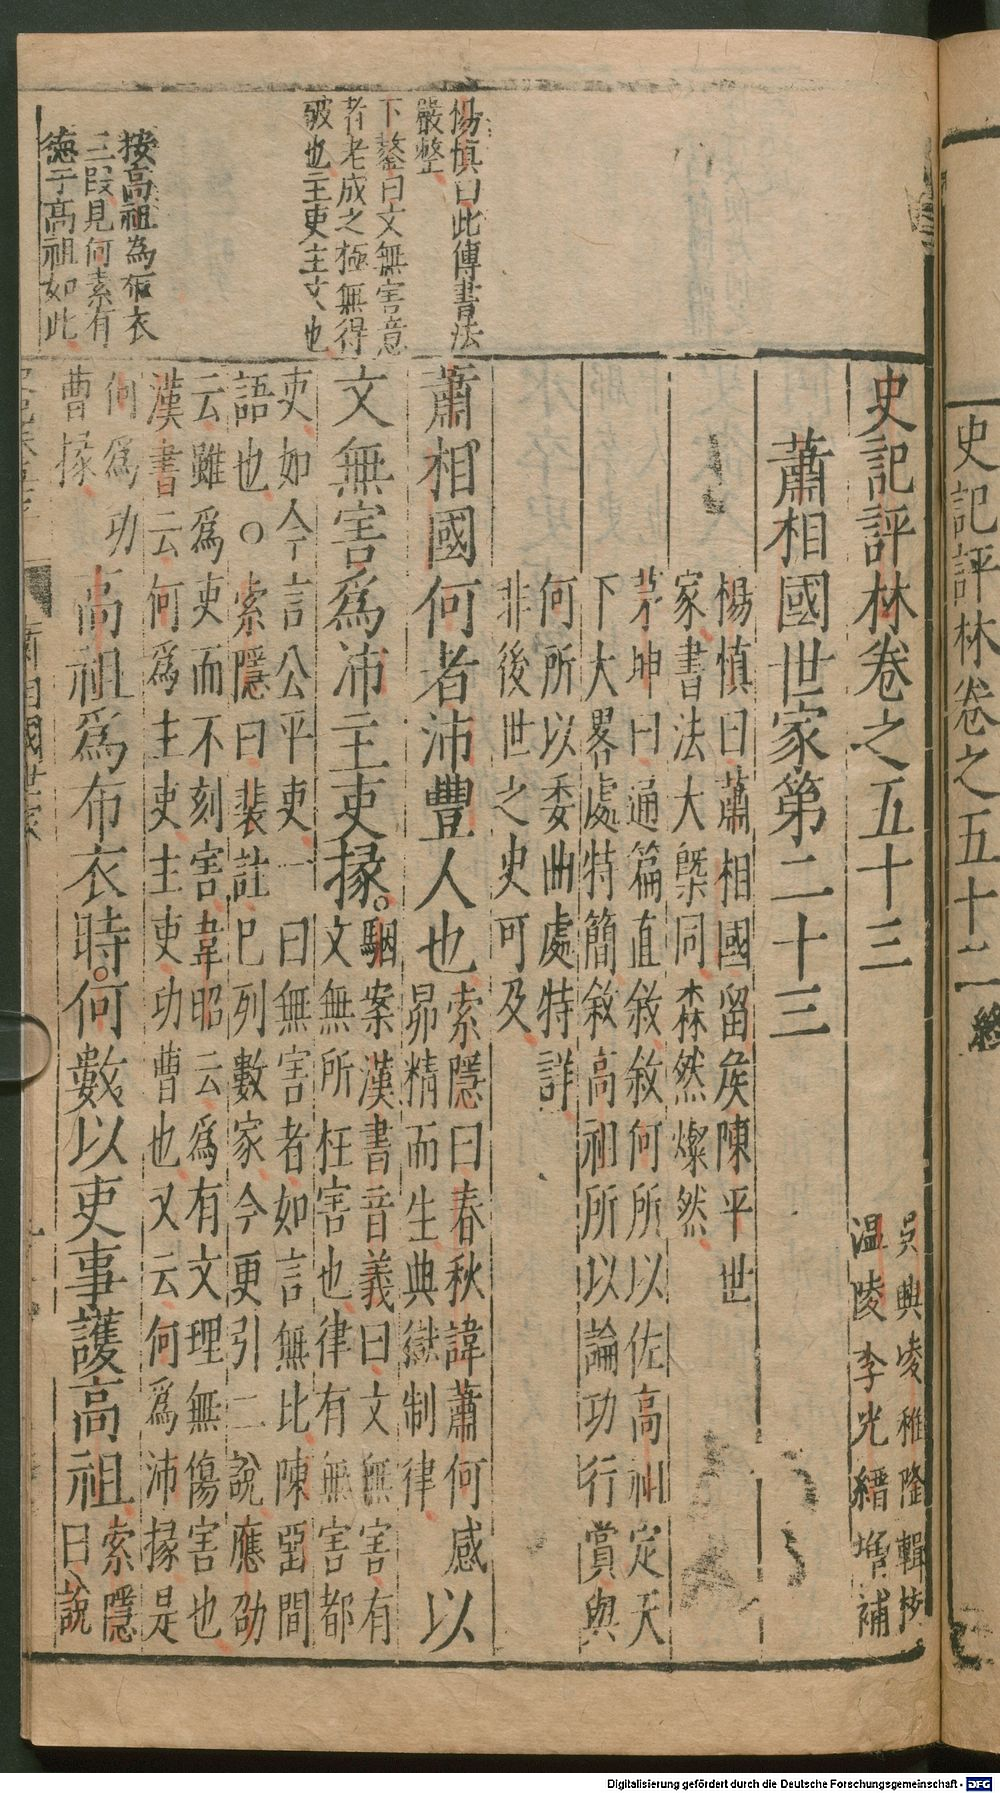 史記評林卷之五十二終
史記評林卷之五十三
吳興凌稚隆輯校
温陵李光縉增補
蕭相國世家第二十三
楊慎曰蕭相國留矦陳平世
家書法大槩同森然燦然
茅坤曰通篇直敘敘何所以佐高祖定天
下大畧處特簡敘高祖所以論功行賞與
何所以委曲處特詳
非後世之史可及
楊慎曰此傳書法
嚴整
蕭相國何者沛豐人也
索隱曰春秋諱蕭何感
昴精而生典獄制律
以
下鏊曰文無害意
者老成之極無得
破也主吏主文也
文無害爲沛主吏掾
駰案漢書音義曰文無害有
文無所枉害也律有無害都
吏如今言公平吏一曰無害者如言無比陳畱間
語也○索隱曰裴註已列數家今更引二說應劭
云雖爲吏而不刻害韋昭云爲有文理無傷害也
漢書云何爲主吏主吏功曹也又云何爲沛掾是
何爲功
曹掾
按高祖為布衣
三段見何素有
德于高祖如此
高祖爲布衣時何數以吏事護高祖
索隱
曰說
蕭相國世家
Digitalisierung gefördert durch die Deutsche Forschungsgemeinschaft - DFG